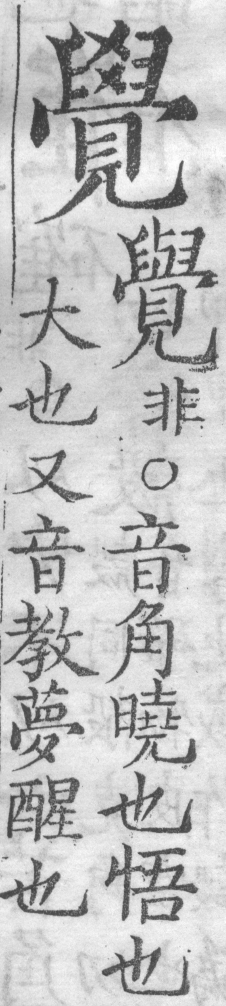 覺
覺非○音角曉也悟也
大也又音教夢醒也